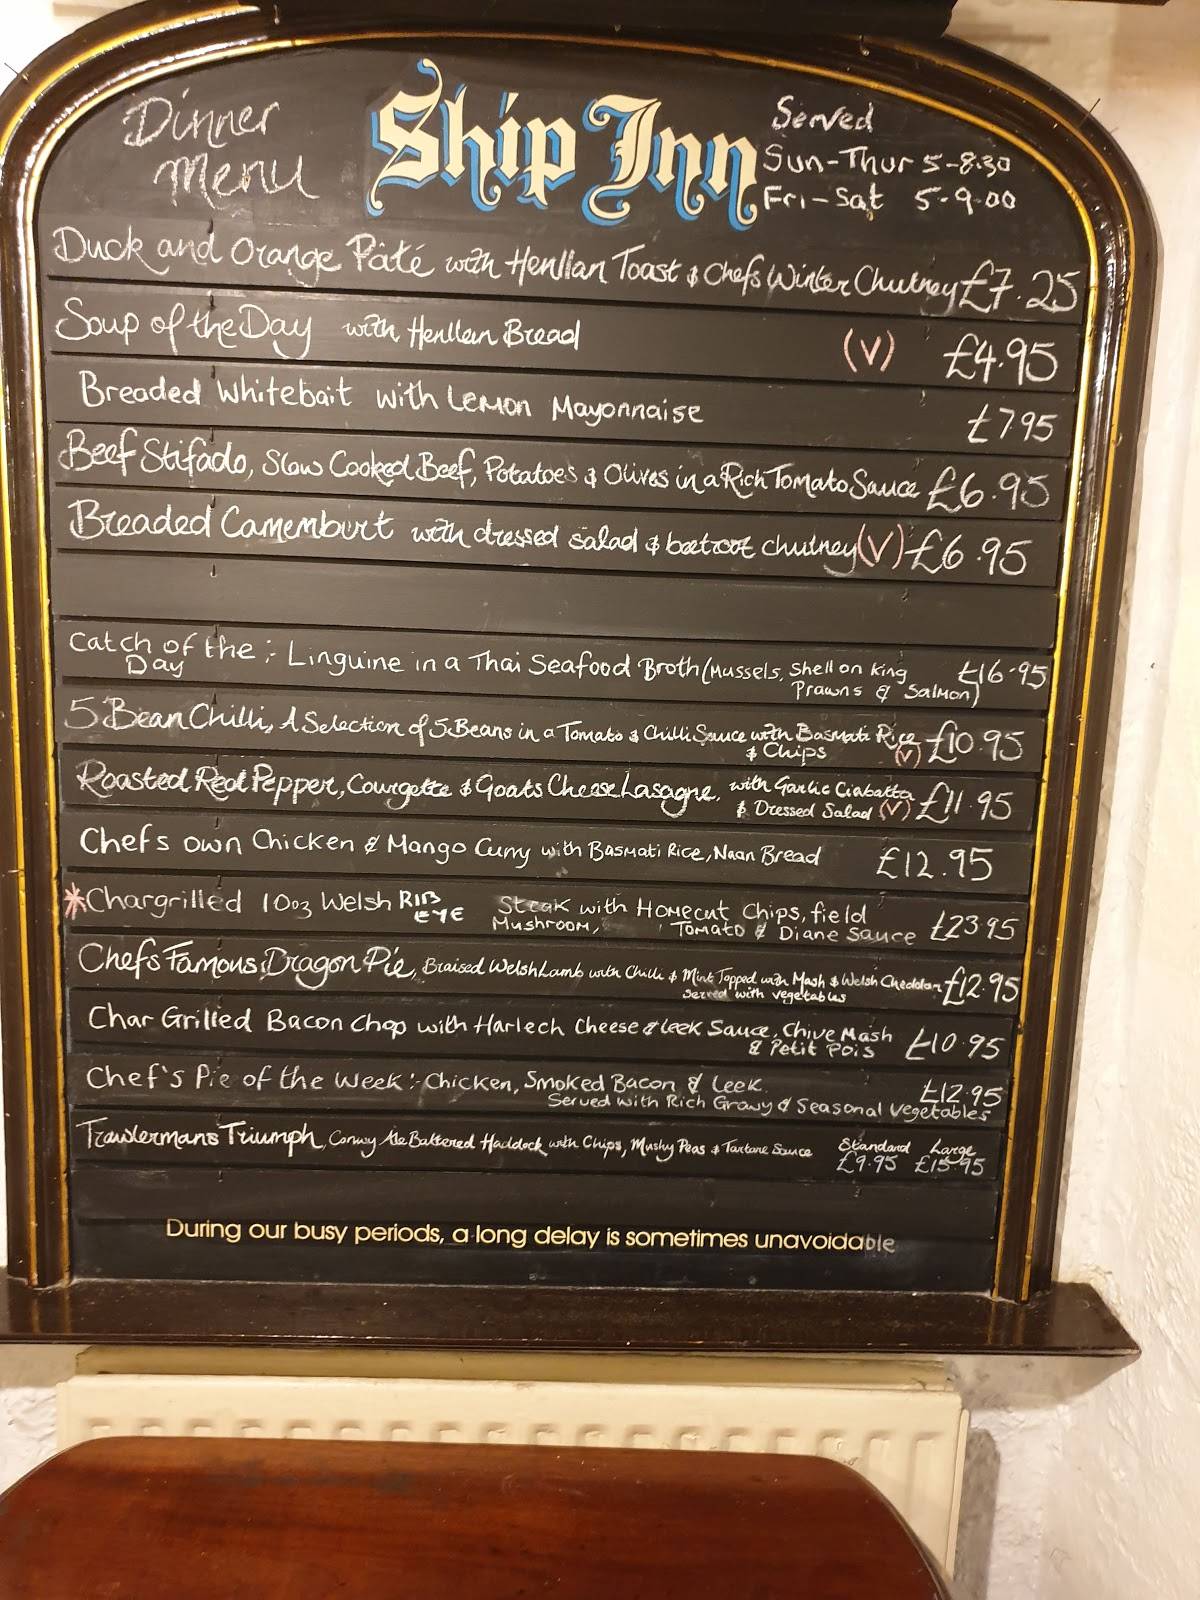 Dinner Menu
Ship Inn
Served
Sun-Thur 5-8.30
Fri-Sat 5-9.00
Duck and Orange Pâté with Henllan Toast & Chefs Winter Chutney £7.25
Soup of the Day with Henllan Bread (V) £4.95
Breaded Whitebait with Lemon Mayonnaise £7.95
Beef Stifado, Slow Cooked Beef, Potatoes & Olives in a Rich Tomato Sauce £6.95
Breaded Camemburt with dressed salad & beetroot chutney (V) £6.95
Catch of the Day :- Linguine in a Thai Seafood Broth (Mussels, Shell on King £16.95
Prawns & Salmon)
5 Bean Chilli, A Selection of 5 Beans in a Tomato & Chilli Sauce with Basmati Rice £10.95
& Chips (V)
Roasted Red Pepper, Courgette & Goats Cheese Lasagne, with Garlic Ciabatta £11.95
& Dressed Salad (V)
Chefs own Chicken & Mango Curry with Basmati Rice, Naan Bread £12.95
*Chargrilled 10oz Welsh RIB EYE Steak with Homecut Chips, field £23.95
Mushroom, Tomato & Diane Sauce
Chefs Famous Dragon Pie, Braised Welsh Lamb with Chilli & Mint Topped with Mash & Welsh Cheddar £12.95
Served with vegetables
Char Grilled Bacon Chop with Harlech Cheese & Leek Sauce, Chive Mash £10.95
& Petit Pois
Chef's Pie of the Week :- Chicken, Smoked Bacon & Leek £12.95
Served with Rich Gravy & Seasonal Vegetables
Trawlermans Triumph, Conwy Ale Battered Haddock with Chips, Mushy Peas & Tartare Sauce Standard £9.95 Large £15.95
During our busy periods, a long delay is sometimes unavoidable